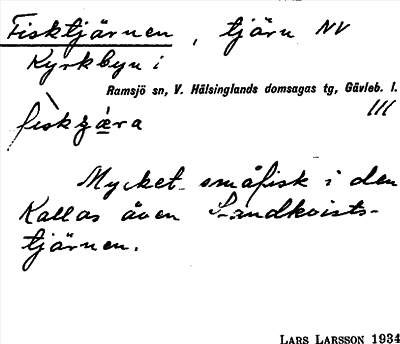 Fisktjärnen, tjärn NV
Kyrkbyn i
Ramsjö sn, V. Hälsinglands domsagas tg, Gävleb. l.
III
fiskʒæra
Mycket småfisk i den
Kallas även Sandkvists-
tjärnen.
LARS LARSSON 1934